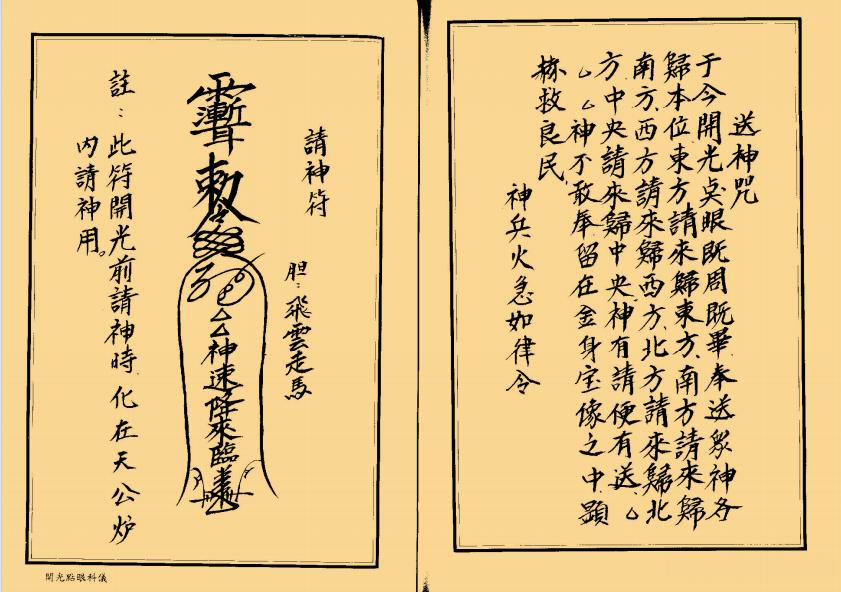 送神咒
于今開光奌眼既周既畢奉送眾神各
歸本位東方請來歸東方、南方請來歸
南方、西方請來歸西方、北方請來歸北
方中央請來歸中央神有請便有送、△
△△神不敢奉留在金身宝像之中顯
赫救良民、
神兵火急如律令
請神符
胆：飛雲走馬
敕令
△△神速降來臨
註：此符開光前請神時化在天公炉
內請神用。
開光點眼科儀